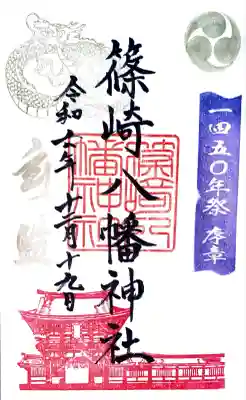 一四五〇年祭 序章
篠崎八幡神社
篠崎八幡神社
十二月十九日
令和